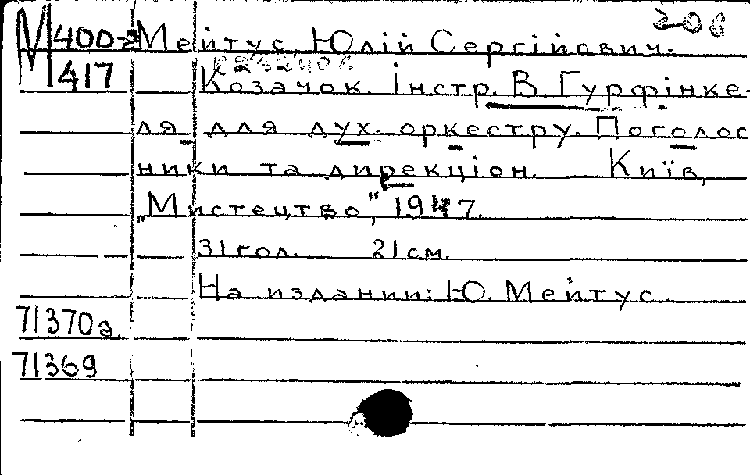 М 400-2 Мейтус, Юлій Сергійович.
М 417 Козачок. Інстр. В. Гурфінке-
ля для дух. оркестру. Поголос
ники та дирекціон. Київ,
„Мистецтво", 1947.
31 гол. 21 см.
На издании: Ю. Мейтус
71370а
71369